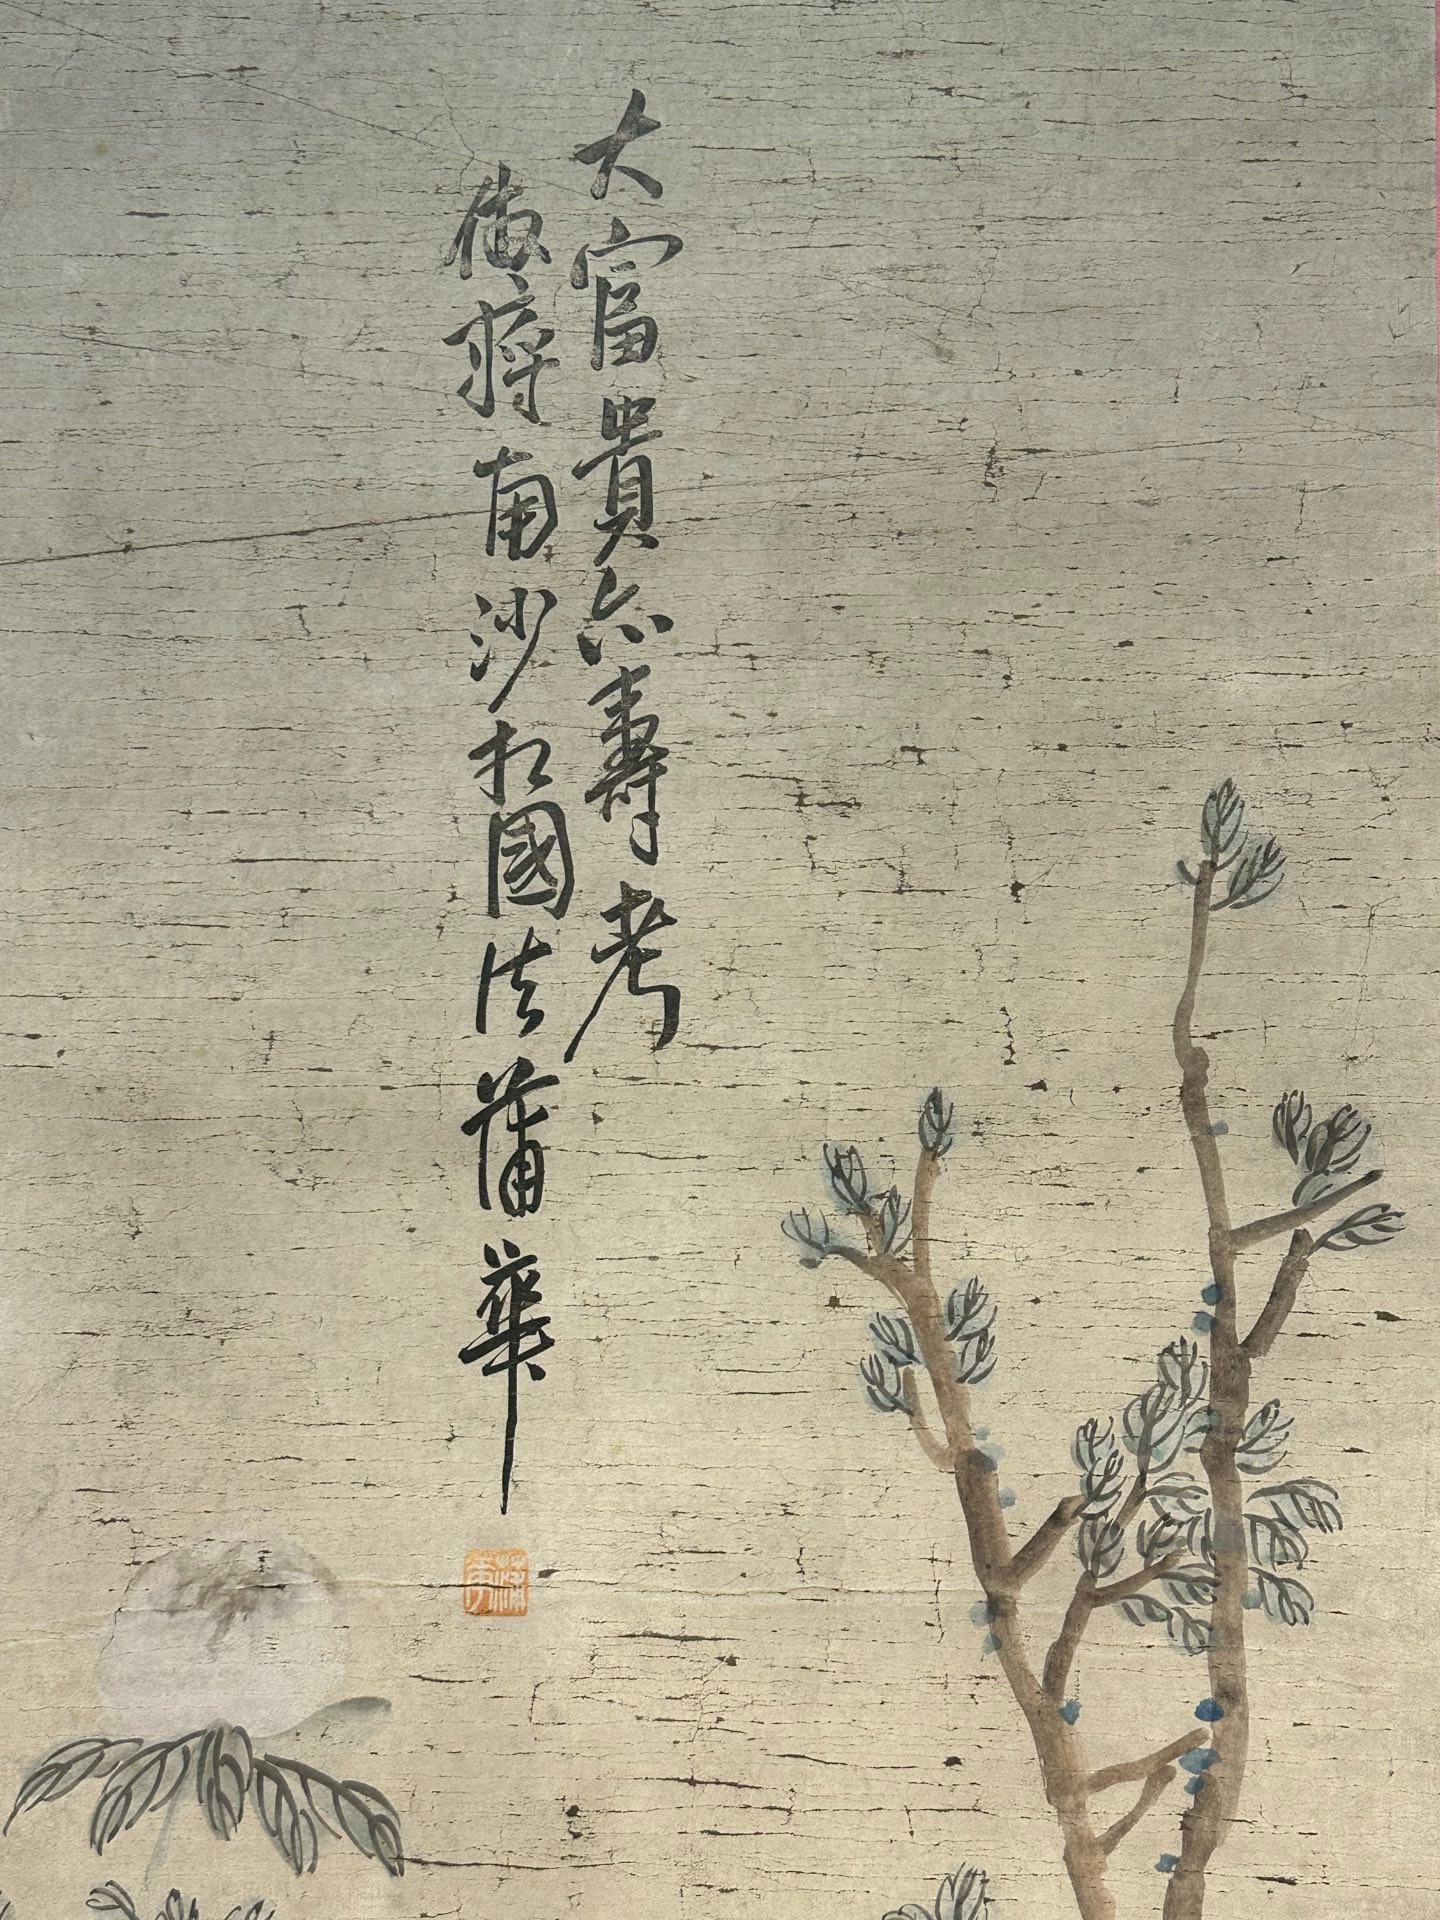 大富貴亦壽考
倣蔣南沙相國法蒲華
蒲華